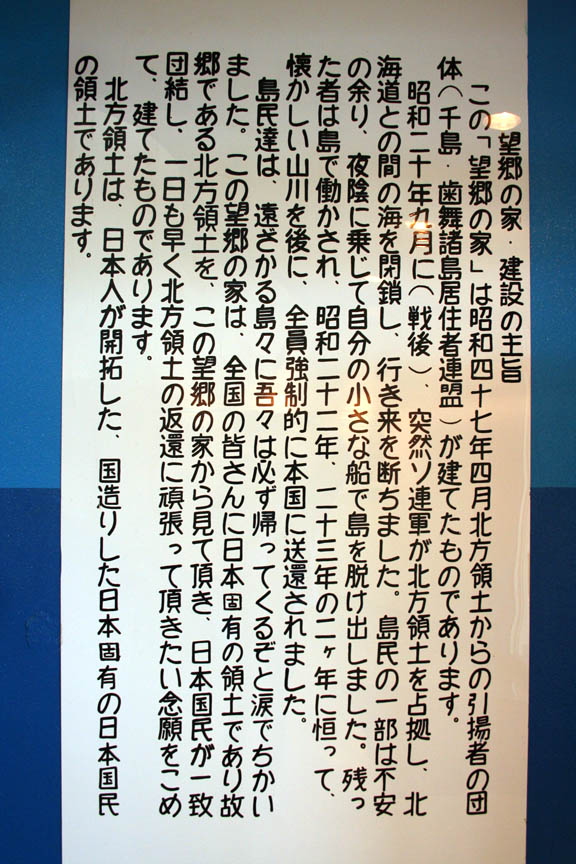 望郷の家・建設の主旨
この「望郷の家」は昭和四十七年四月北方領土からの引揚者の団
体(千島・歯舞諸島居住者連盟)が建てたものであります。
昭和二十年九月に(戦後)、突然ソ連軍が北方領土を占拠し、北
海道との間の海を閉鎖し、行き来を断ちました。島民の一部は不安
の余り、夜陰に乗じて自分の小さな船で島を脱け出しました。残っ
た者は島で働かされ、昭和二十二年、二十三年の二ヶ年に恒って、
懐かしい山川を後に、全員強制的に本国に送還されました。
島民達は、遠ざかる島々に吾々は必ず帰ってくるぞと涙でちかい
ました。この望郷の家は、全国の皆さんに日本固有の領土であり故
郷である北方領土を、この望郷の家から見て頂き、日本国民が一致
団結し、一日も早く北方領土の返還に頑張って頂きたい念願をこめ
て、建てたものであります。
北方領土は、日本人が開拓した、国造りした日本固有の日本国民
の領土であります。